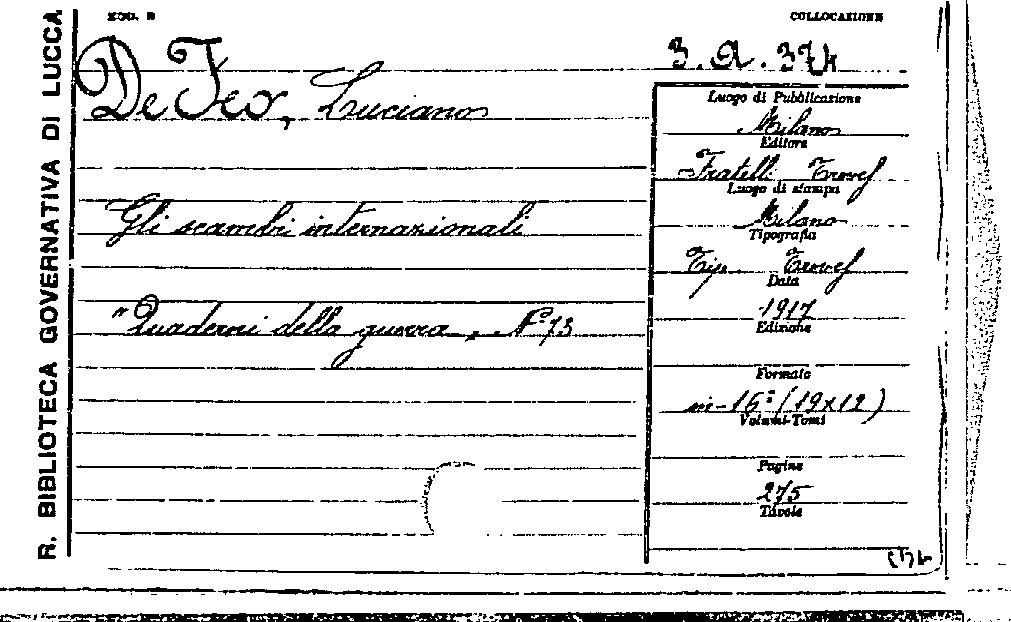 R. BIBLIOTECA GOVERNATIVA DI LUCCA
MOD. B
COLLOCAZIONE
3. Q. 374
De Feo, Luciano
Gli scambi internazionali
"Quaderni della guerra, N.º 73
Luogo di Pubblicazione
Milano
Editore
Fratelli Treves
Luogo di stampa
Milano
Tipografia
Tip. Treves
Data
1917
Edizione
Formato
in-16º (19x12)
Volumi-Tomi
Pagine
275
Tavole